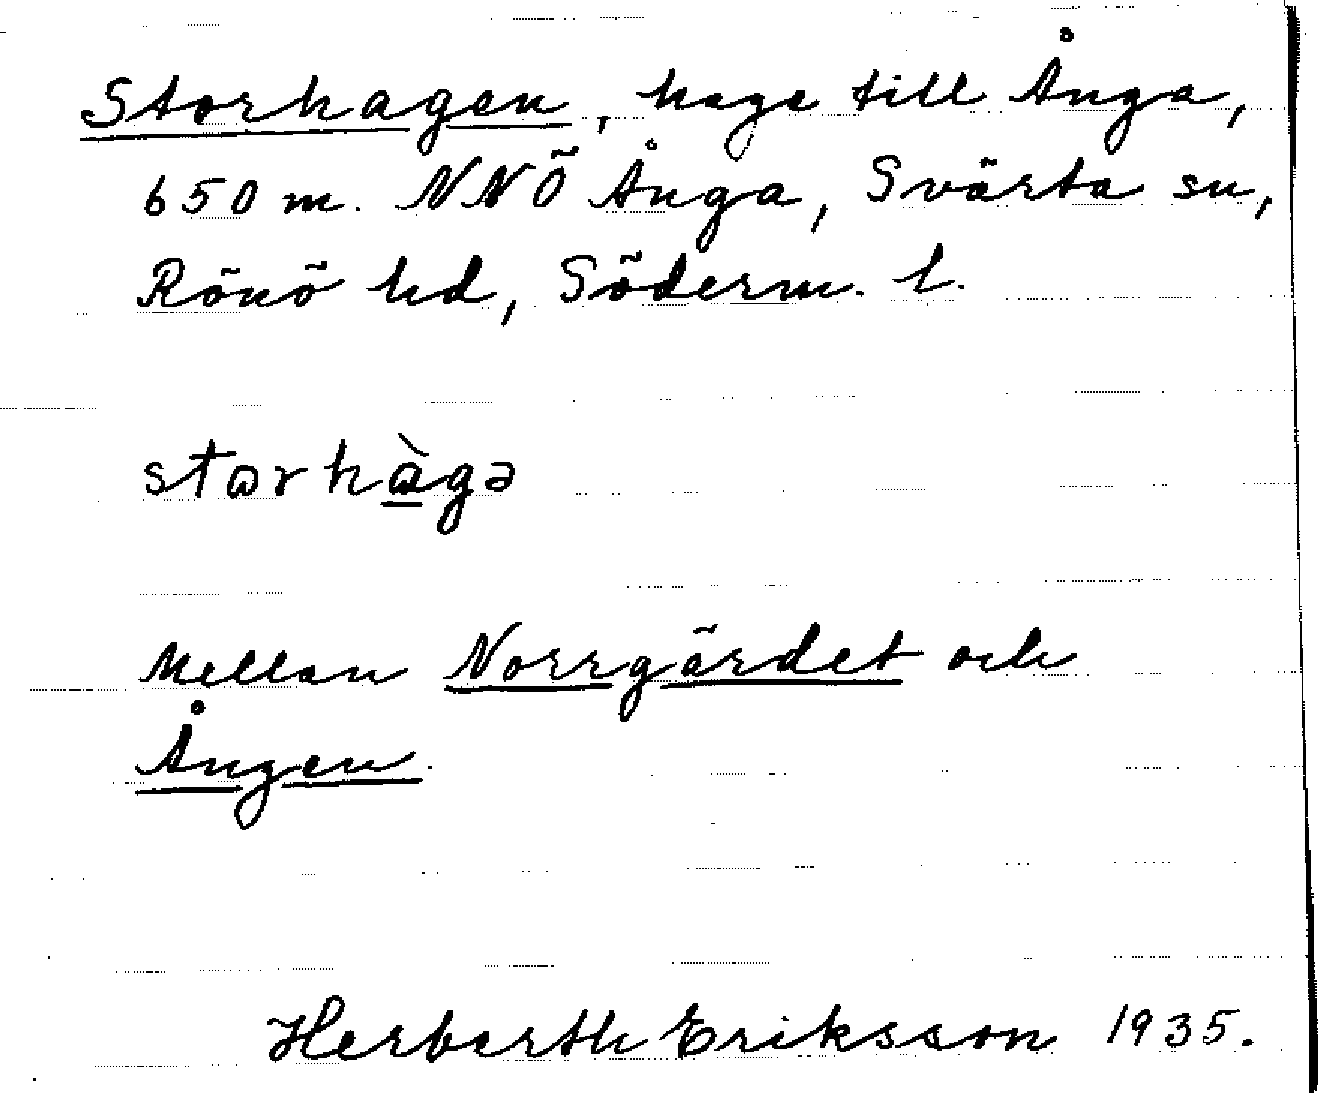 Storhagen, hage till Ånga,
650 m. NNÖ Ånga, Svärta sn,
Rönö hd, Söderm. l.
storhàgə
Mellan Norrgärdet och
Ängen.
Herberth Eriksson 1935.